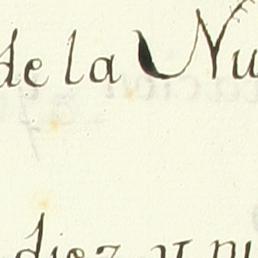 de la Nu
diez y nu